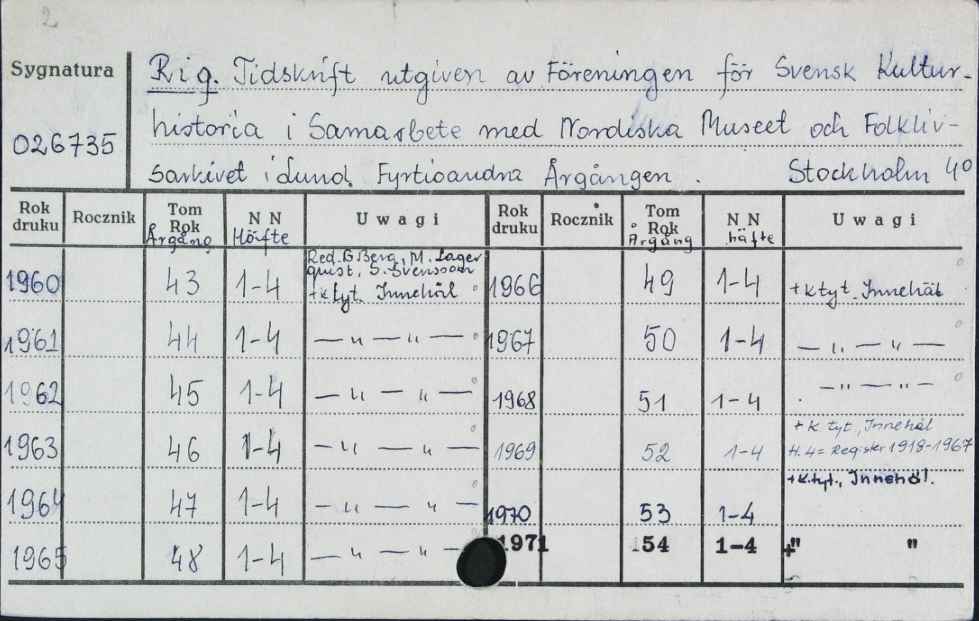 2
Sygnatura
026735
Rig. Tidskrift utgiven av Föreningen för Svensk Kultur-
historia i Samarbete med Nordiska Museet och Folkliv-
sarkivet i Lund. Fyrtioandra Årgången. Stockholm 4º
Rok druku Rocznik Tom Rok Årgång N N Häfte Uwagi Rok druku Rocznik Tom Rok Årgång N N häfte Uwagi
Red. G. Berg, M. Lager
quist, S. Svensson
1960 43 1-4 +k tyt. Innehål 1966 49 1-4 +k tyt. Innehål
1961 44 1-4 — " — " — 1967 50 1-4 — " — " —
1962 45 1-4 — " — " — 1968 51 1-4 — " — " —
+ k tyt, Innehål
1963 46 1-4 — " — " — 1969 52 1-4 H. 4 = Register 1918-1967
+k.tyt., Innehål.
1964 47 1-4 — " — " — 1970 53 1-4
1965 48 1-4 — " — " — 1971 54 1-4 +" "